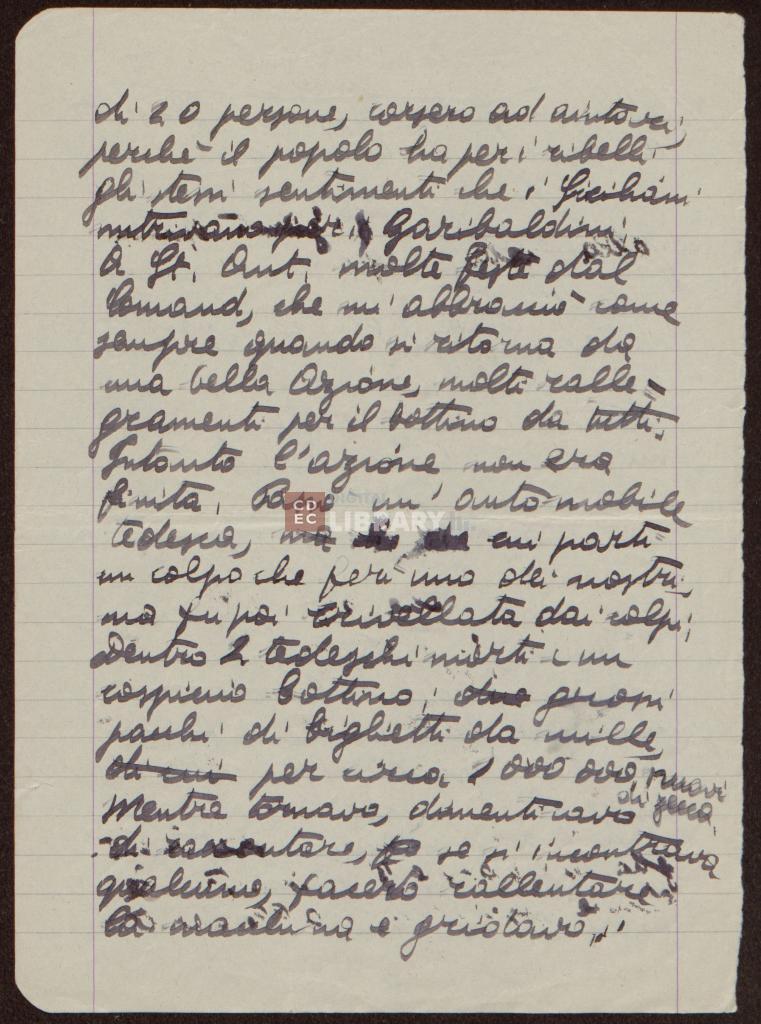 di 20 persone, corsero ad aiutarci,
perché il popolo ha per i ribelli
gli stessi sentimenti che i Siciliani
nutrivano per i Garibaldini.
A St. Ant. molte feste dal
Comand, che mi abbracciò come
sempre quando si ritorna da
una bella Azione, molti ralle=
gramenti per il bottino da tutti.
Intanto l'azione non era
finita. Passò un'automobile
tedesca, da cui partì
un colpo che ferì uno dei nostri,
ma fu poi crivellata dai colpi;
dentro 2 tedeschi morti e un
cospicuo bottino; due grossi
pacchi di biglietti da mille,
di cui per circa 1 000 000, nuovi
di zecca.
Mentre tornavo, dimenticavo
di raccontare, se si incontrava
qualcuno, facevo rallentare
la macchina e gridavo,:
CDEC
LIBRARY